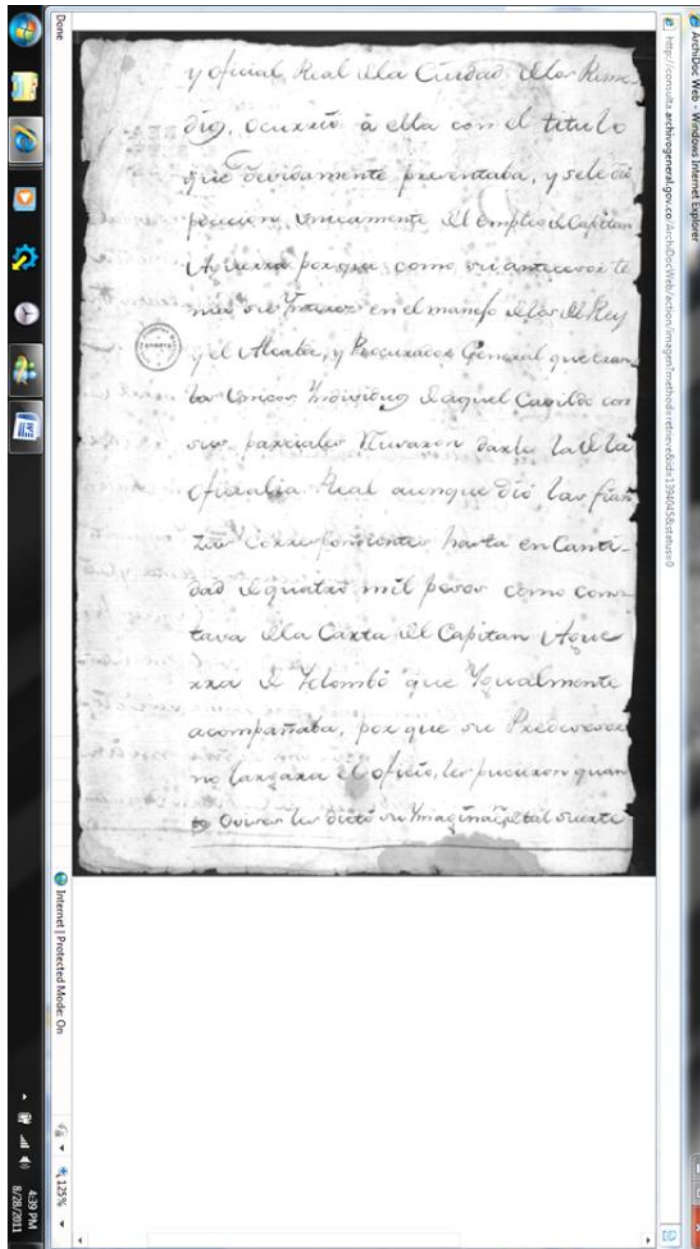 ArchiDoc Web - Windows Internet Explorer
http://consulta.archivogeneral.gov.co/ArchiDocWeb/action/imagen?method=retrieve&id=1394045&status=0
y oficial Real dela Ciudad delos Reme-
dios, ocurrió à ella con el titulo
que devidamente presentaba, y sele dio
posecion unicamente del empleo de Capitan
Aguerra por que como su antecesor te
nia su Ynteres en el manejo delos del Rey
y el Alcalde, y Procurador General que eran
los Unicos Yndividuos de aquel Cavildo con
sus parciales reusaron darle la de la
oficialia Real aunque dió las fian
zas correspondientes hasta en Canti-
dad de quatro mil pesos como cons
tava dela Carta del Capitan Ague
rra de Yolombó que Ygualmente
acompañaba, por que su Predecesor
no largara el oficio, les pucieron quan
to les dictó su Ymaginac.n de tal suerte
Done
Internet | Protected Mode: On
125%
4:39 PM
8/28/2011